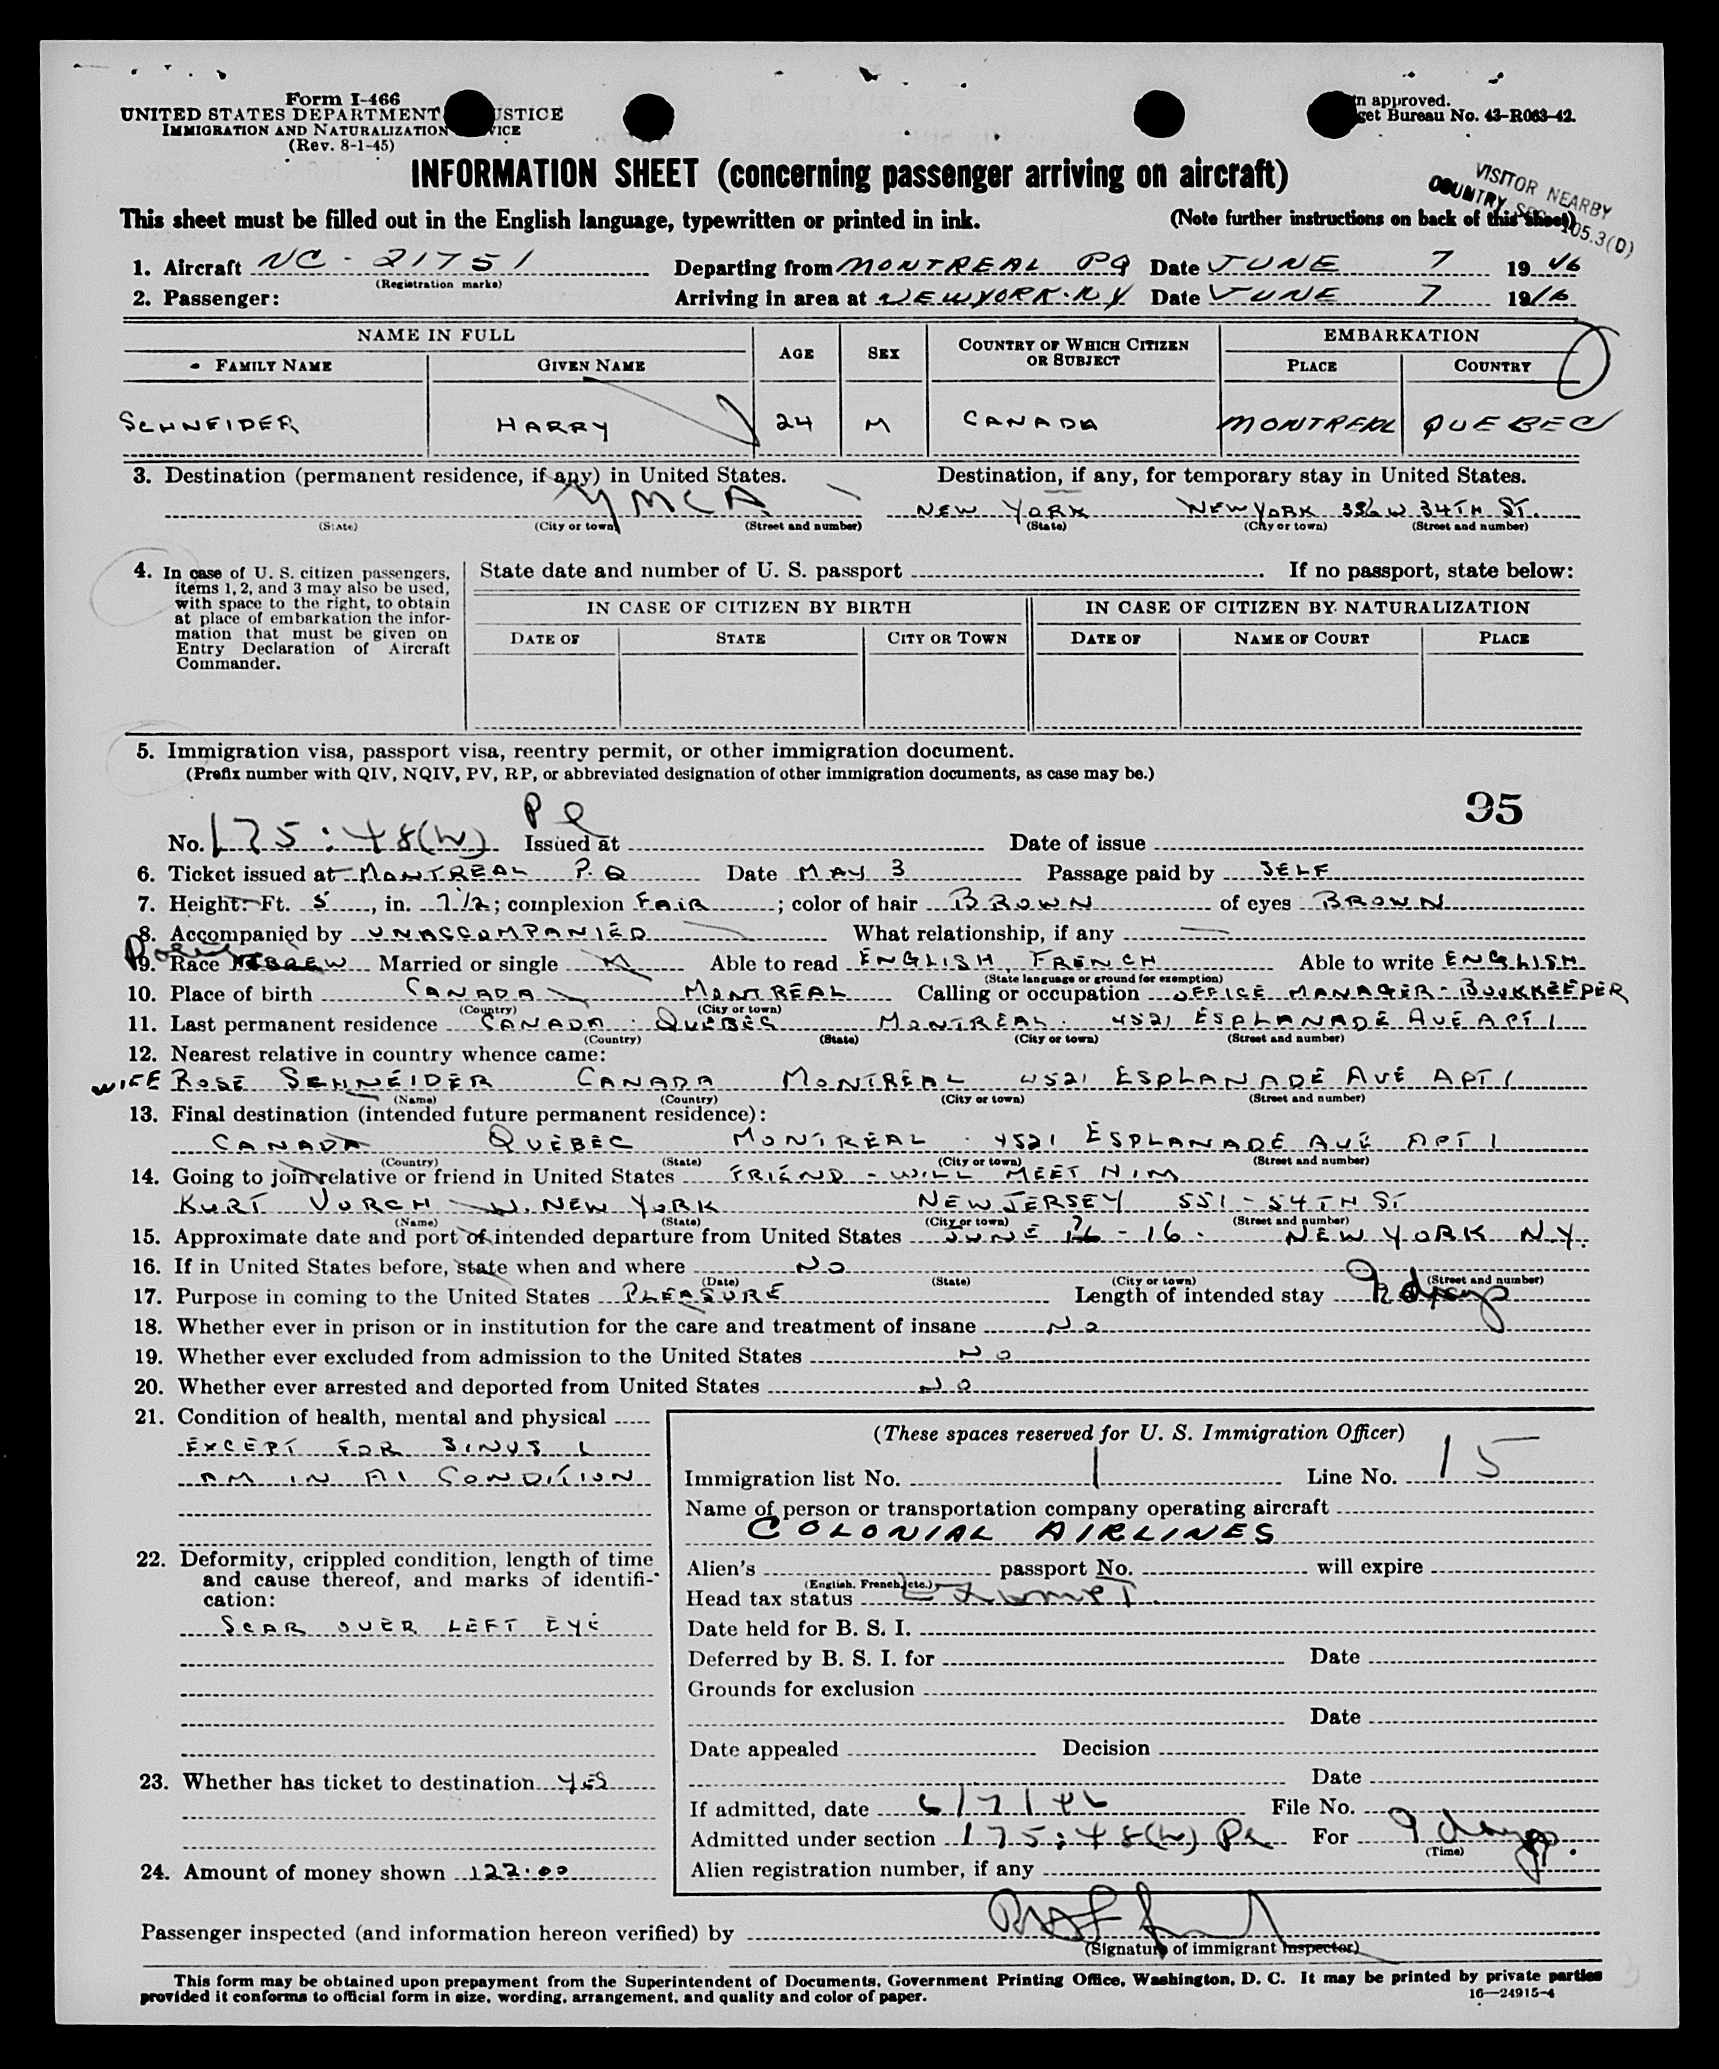 Form I-466
UNITED STATES DEPARTMENT JUSTICE
IMMIGRATION AND NATURALIZATION SERVICE
(Rev. 8-1-45)
n approved.
get Bureau No. 43-R063-42.
INFORMATION SHEET (concerning passenger arriving on aircraft)
VISITOR NEARBY
COUNTRY SEC. 105.3(D)
This sheet must be filled out in the English language, typewritten or printed in ink. (Note further instructions on back of this sheet)
1. Aircraft NC-21751 Departing from MONTREAL PQ Date JUNE 7 1946
(Registration marks)
2. Passenger: Arriving in area at NEW YORK. N.Y Date JUNE 7 1946
NAME IN FULL AGE SEX COUNTRY OF WHICH CITIZEN OR SUBJECT EMBARKATION
FAMILY NAME GIVEN NAME PLACE COUNTRY
SCHNEIDER HARRY 24 M CANADA MONTREAL QUEBEC
3. Destination (permanent residence, if any) in United States. Destination, if any, for temporary stay in United States.
YMCA NEW YORK NEW YORK 356 W 34TH ST.
(State) (City or town) (Street and number) (State) (City or town) (Street and number)
4. In case of U. S. citizen passengers, items 1, 2, and 3 may also be used, with space to the right, to obtain at place of embarkation the information that must be given on Entry Declaration of Aircraft Commander.
State date and number of U. S. passport If no passport, state below:
IN CASE OF CITIZEN BY BIRTH IN CASE OF CITIZEN BY NATURALIZATION
DATE OF STATE CITY OR TOWN DATE OF NAME OF COURT PLACE
5. Immigration visa, passport visa, reentry permit, or other immigration document.
(Prefix number with QIV, NQIV, PV, RP, or abbreviated designation of other immigration documents, as case may be.)
95
No. 175:48(W) Pl Issued at Date of issue
6. Ticket issued at MONTREAL P.Q Date MAY 3 Passage paid by SELF
7. Height: Ft. 5, in. 7 1/2; complexion FAIR; color of hair BROWN of eyes BROWN
8. Accompanied by UNACCOMPANIED What relationship, if any —
9. Race HEBREW Married or single M Able to read ENGLISH, FRENCH Able to write ENGLISH
(State language or ground for exemption)
10. Place of birth CANADA MONTREAL Calling or occupation OFFICE MANAGER-BOOKKEEPER
(Country) (City or town)
11. Last permanent residence CANADA. QUEBEC MONTREAL. 4521 ESPLANADE AVE APT 1
(Country) (State) (City or town) (Street and number)
12. Nearest relative in country whence came:
WIFE ROSE SCHNEIDER CANADA MONTREAL 4521 ESPLANADE AVE APT 1
(Name) (Country) (City or town) (Street and number)
13. Final destination (intended future permanent residence):
CANADA QUEBEC MONTREAL. 4521 ESPLANADE AVE APT 1
(Country) (State) (City or town) (Street and number)
14. Going to join relative or friend in United States FRIEND - WILL MEET HIM
KURT W. NEW YORK NEW JERSEY 551-54TH ST
(Name) (State) (City or town) (Street and number)
15. Approximate date and port of intended departure from United States JUNE 16. NEW YORK N.Y.
16. If in United States before, state when and where NO
(Date) (State) (City or town) (Street and number)
17. Purpose in coming to the United States PLEASURE Length of intended stay 9 days
18. Whether ever in prison or in institution for the care and treatment of insane NO
19. Whether ever excluded from admission to the United States NO
20. Whether ever arrested and deported from United States NO
21. Condition of health, mental and physical
EXCEPT FOR SINUS I
AM IN A1 CONDITION
22. Deformity, crippled condition, length of time and cause thereof, and marks of identification:
SCAR OVER LEFT EYE
23. Whether has ticket to destination YES
24. Amount of money shown 122.00
(These spaces reserved for U. S. Immigration Officer)
Immigration list No. 1 Line No. 15
Name of person or transportation company operating aircraft
COLONIAL AIRLINES
Alien's passport No. will expire
(English, French, etc.)
Head tax status Exempt
Date held for B. S. I.
Deferred by B. S. I. for Date
Grounds for exclusion
Date
Date appealed Decision
Date
If admitted, date 6/7/46 File No.
Admitted under section 175:48(W) Pl For 9 days.
(Time)
Alien registration number, if any
Passenger inspected (and information hereon verified) by
(Signature of immigrant inspector)
This form may be obtained upon prepayment from the Superintendent of Documents, Government Printing Office, Washington, D. C. It may be printed by private parties
provided it conforms to official form in size, wording, arrangement, and quality and color of paper.
16—24915-4